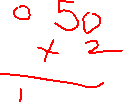 0 50
× 2
1